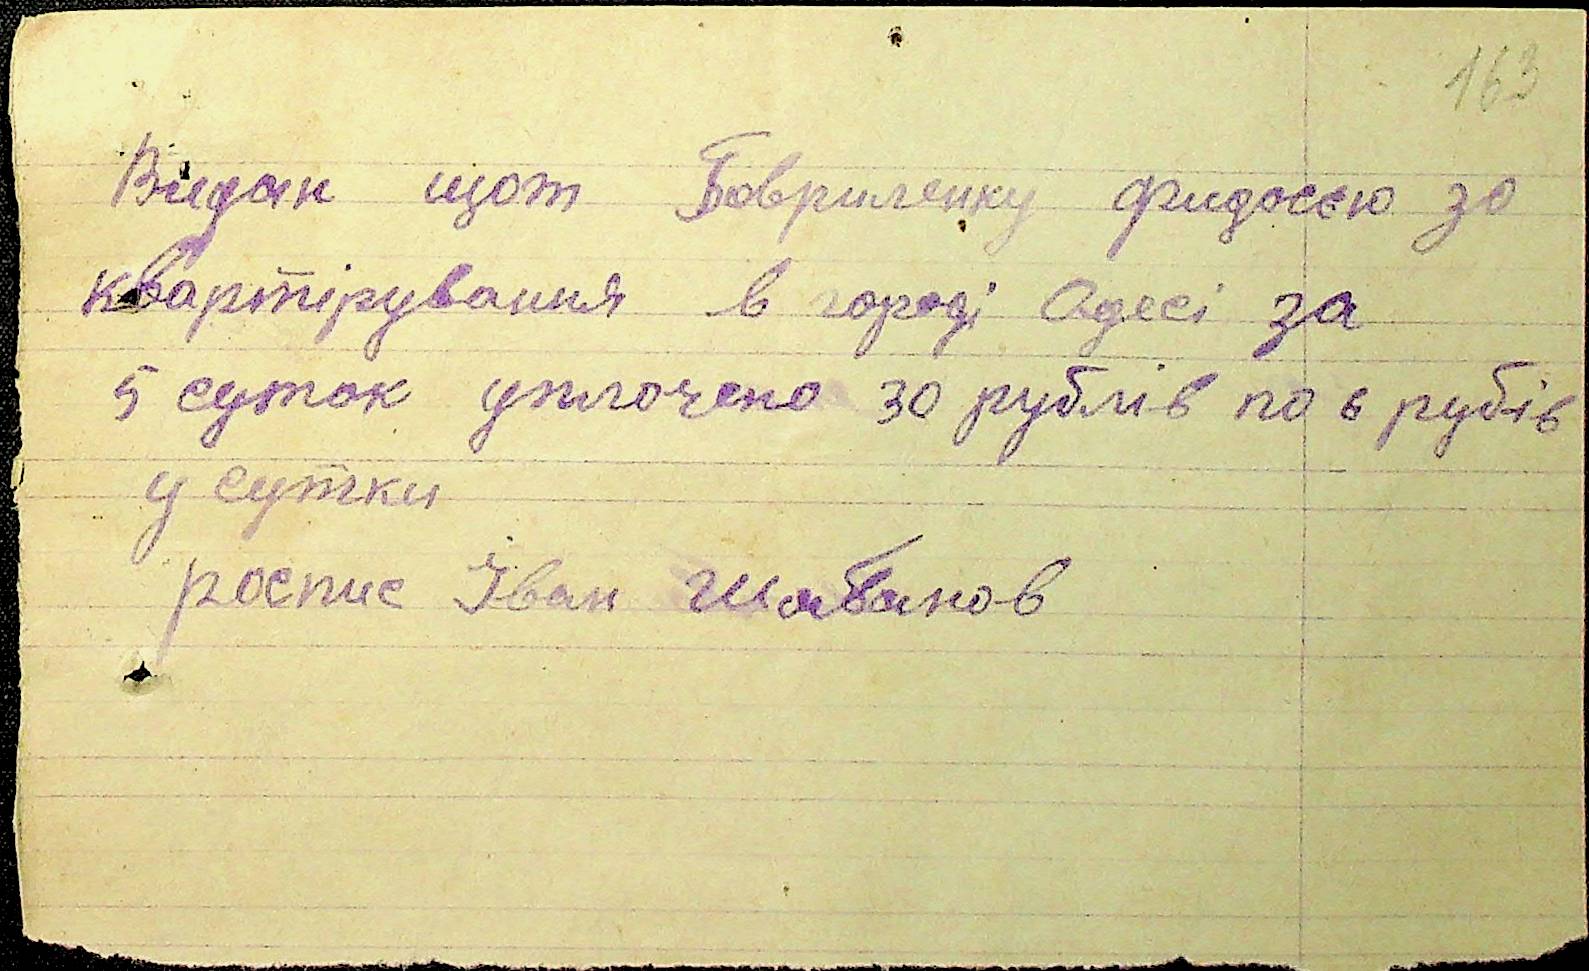 163
Видан щот Говриленку Фидосєю зо
квартірування в городі Одесі за
5 суток уплочено 30 рублів по 6 рубів
у сутки
роспис Іван Шабанов